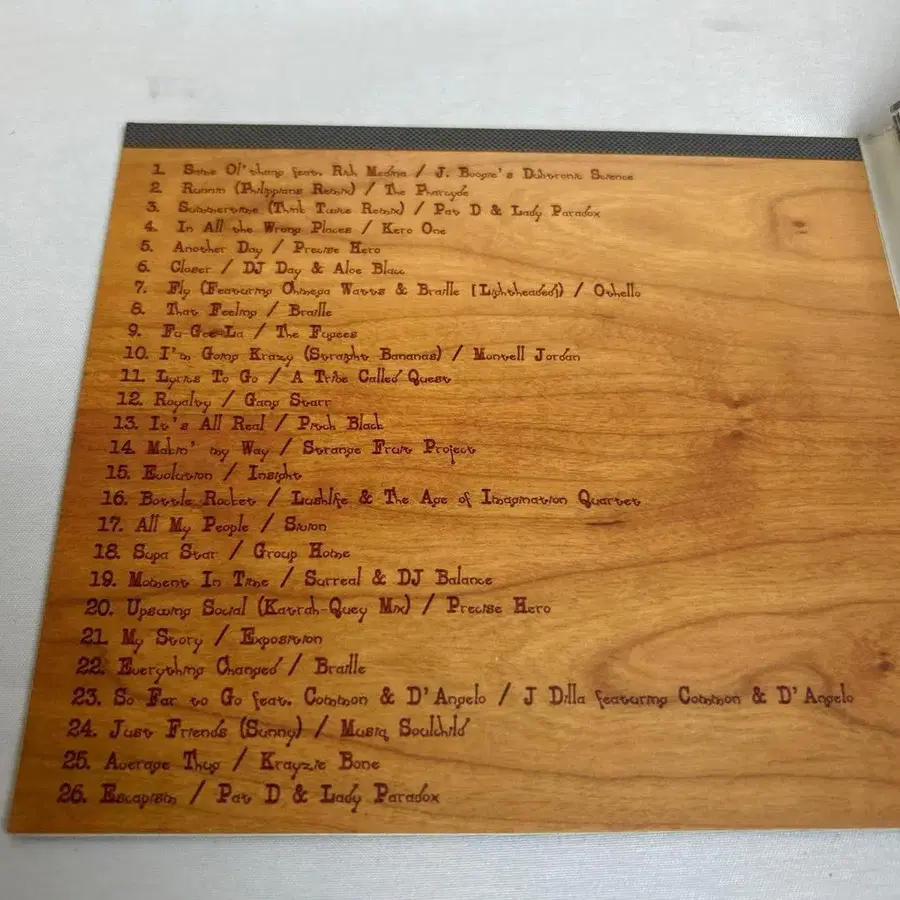 1. Same Ol' thang feat. Rah Medina / J. Boogie's Dubtronic Science
2. Runnin (Philippians Remix) / The Pharcyde
3. Summertime (Think Twice Remix) / Pat D & Lady Paradox
4. In All the Wrong Places / Kero One
5. Another Day / Precise Hero
6. Closer / DJ Day & Aloe Blacc
7. Fly (Featuring Ohmega Watts & Braille [Lightheaded]) / Othello
8. That Feeling / Braille
9. Fu-Gee-La / The Fugees
10. I'm Going Krazy (Straight Bananas) / Montell Jordan
11. Lyrics To Go / A Tribe Called Quest
12. Royalty / Gang Starr
13. It's All Real / Pitch Black
14. Makin' my Way / Strange Fruit Project
15. Evolution / Insight
16. Bottle Rocket / Lushlife & The Age of Imagination Quartet
17. All My People / Sivion
18. Supa Star / Group Home
19. Moment In Time / Surreal & DJ Balance
20. Upswing Social (Katrah-Quey Mix) / Precise Hero
21. My Story / Exposition
22. Everything Changed / Braille
23. So Far to Go feat. Common & D'Angelo / J Dilla featuring Common & D'Angelo
24. Just Friends (Sunny) / Musiq Soulchild
25. Average Thug / Krayzie Bone
26. Escapism / Pat D & Lady Paradox